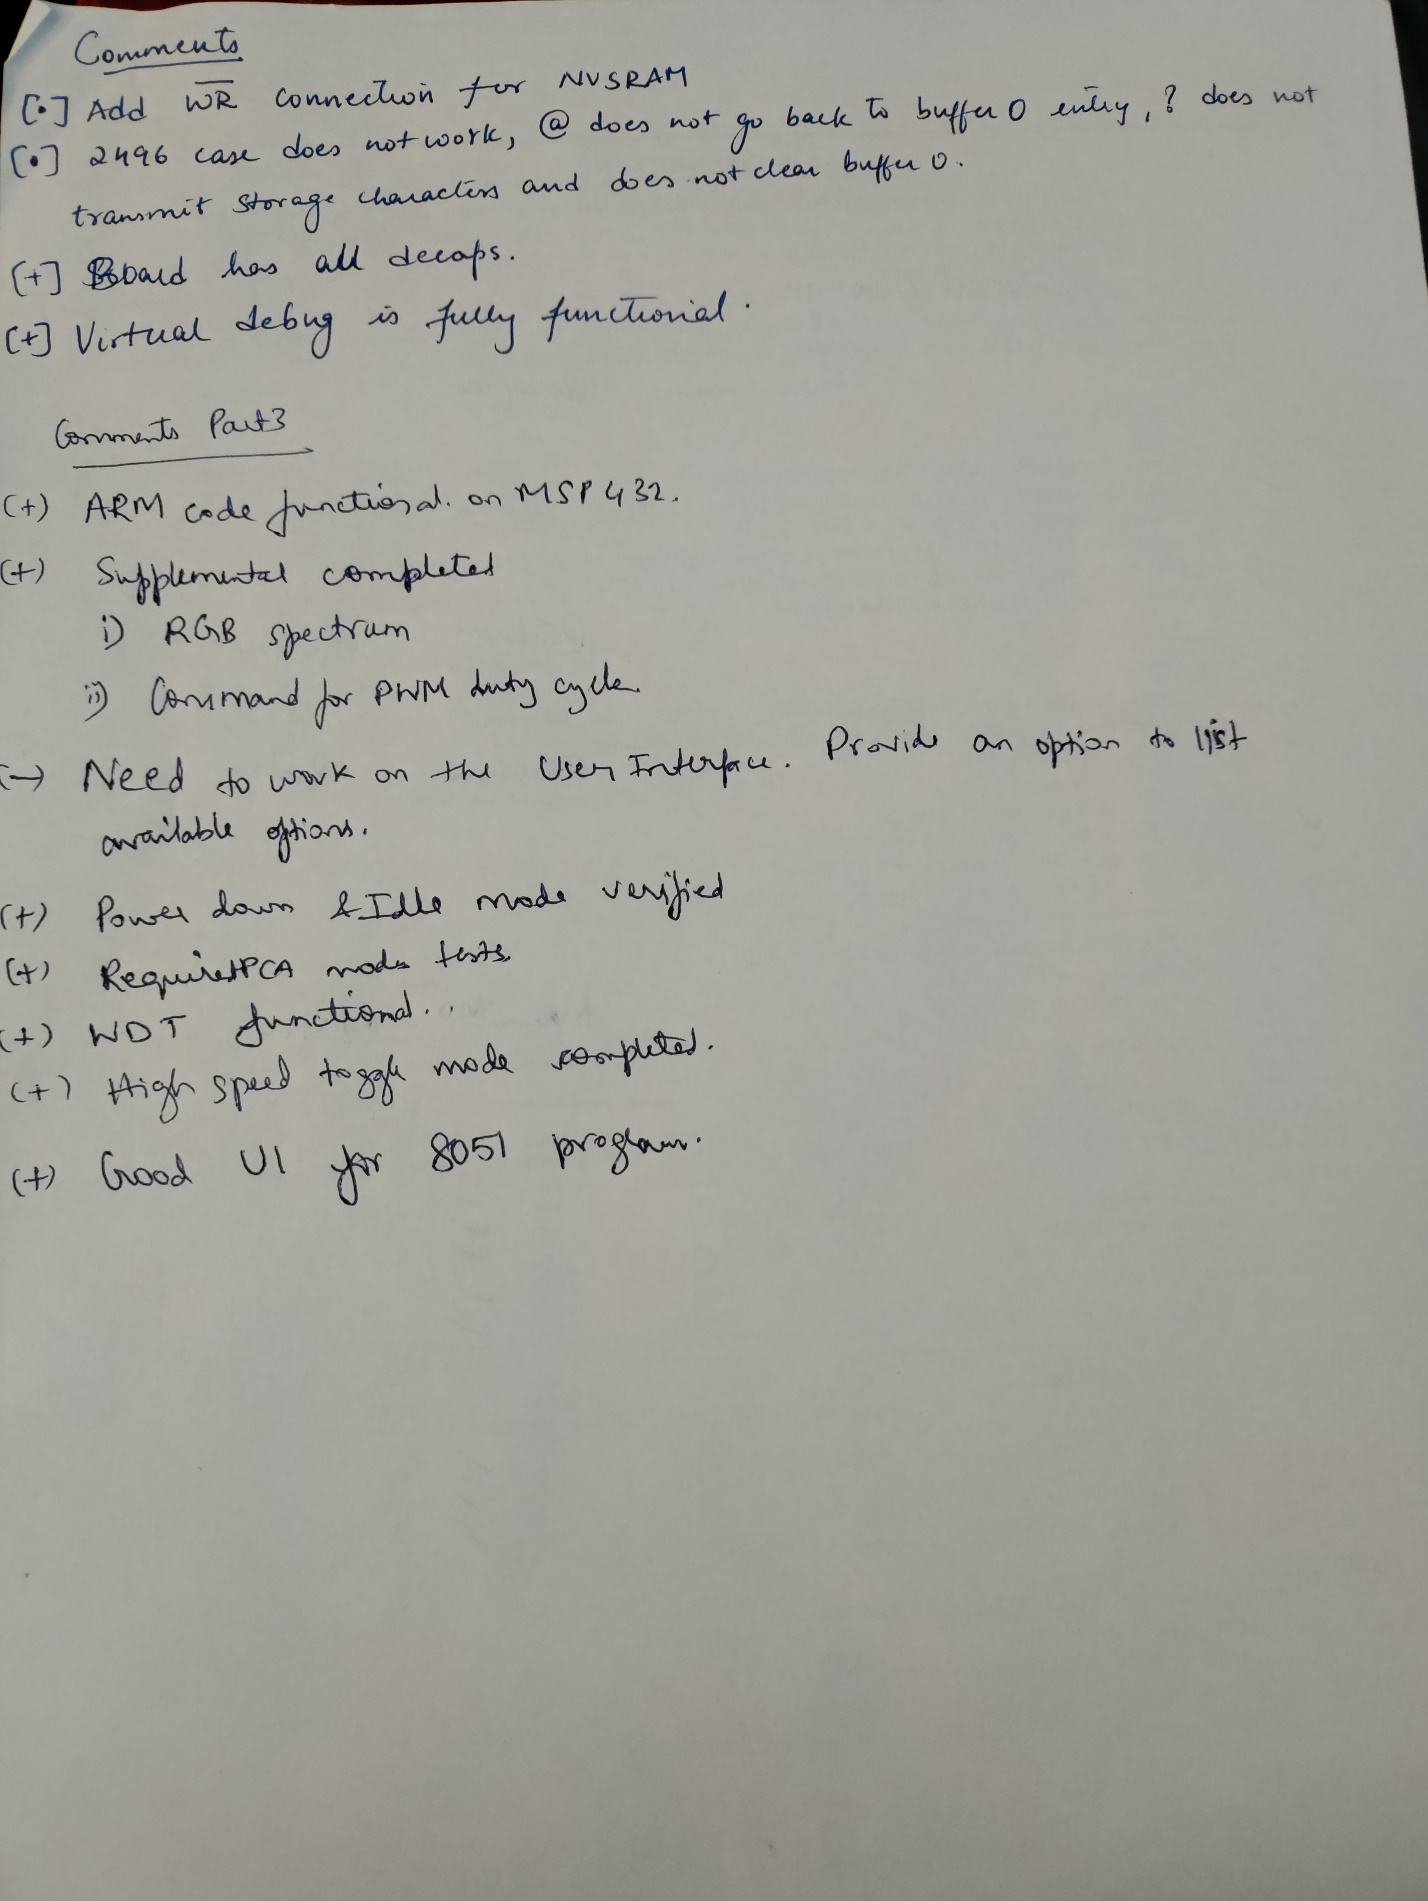 Comments
[•] Add W̅R̅ connection for NVSRAM
[•] 2496 case does not work, @ does not go back to buffer 0 entry, ? does not
transmit storage characters and does not clear buffer 0.
[+] Board has all decaps.
[+] Virtual debug is fully functional.
Comments Part3
(+) ARM code functional. on MSP432.
(+) Supplemental completed
i) RGB spectrum
ii) Command for PWM duty cycle.
(-) Need to work on the User Interface. Provide an option to list
available options.
(+) Power down & Idle mode verified
(+) Required PCA mode tests
(+) WDT functional..
(+) High speed toggle mode completed.
(+) Good UI for 8051 program.